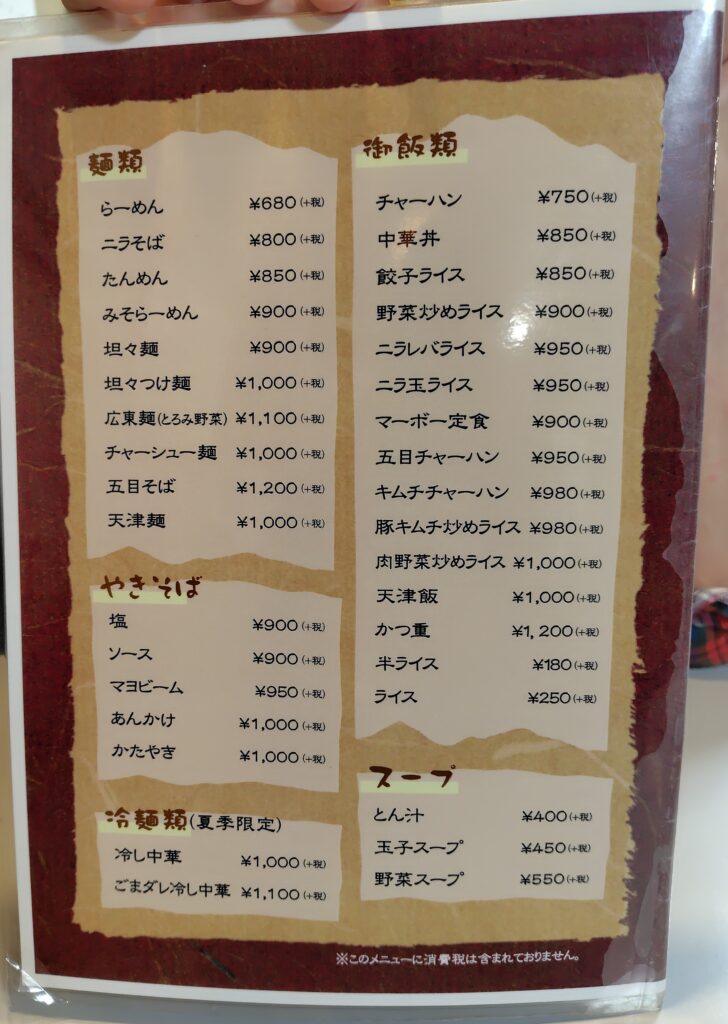 麺類
らーめん ¥680(+税)
ニラそば ¥800(+税)
たんめん ¥850(+税)
みそらーめん ¥900(+税)
坦々麺 ¥900(+税)
坦々つけ麺 ¥1,000(+税)
広東麺(とろみ野菜) ¥1,100(+税)
チャーシュー麺 ¥1,000(+税)
五目そば ¥1,200(+税)
天津麺 ¥1,000(+税)
やきそば
塩 ¥900(+税)
ソース ¥900(+税)
マヨビーム ¥950(+税)
あんかけ ¥1,000(+税)
かたやき ¥1,000(+税)
冷麺類(夏季限定)
冷し中華 ¥1,000(+税)
ごまダレ冷し中華 ¥1,100(+税)
御飯類
チャーハン ¥750(+税)
中華丼 ¥850(+税)
餃子ライス ¥850(+税)
野菜炒めライス ¥900(+税)
ニラレバライス ¥950(+税)
ニラ玉ライス ¥950(+税)
マーボー定食 ¥900(+税)
五目チャーハン ¥950(+税)
キムチチャーハン ¥980(+税)
豚キムチ炒めライス ¥980(+税)
肉野菜炒めライス ¥1,000(+税)
天津飯 ¥1,000(+税)
かつ重 ¥1,200(+税)
半ライス ¥180(+税)
ライス ¥250(+税)
スープ
とん汁 ¥400(+税)
玉子スープ ¥450(+税)
野菜スープ ¥550(+税)
※このメニューに消費税は含まれておりません。